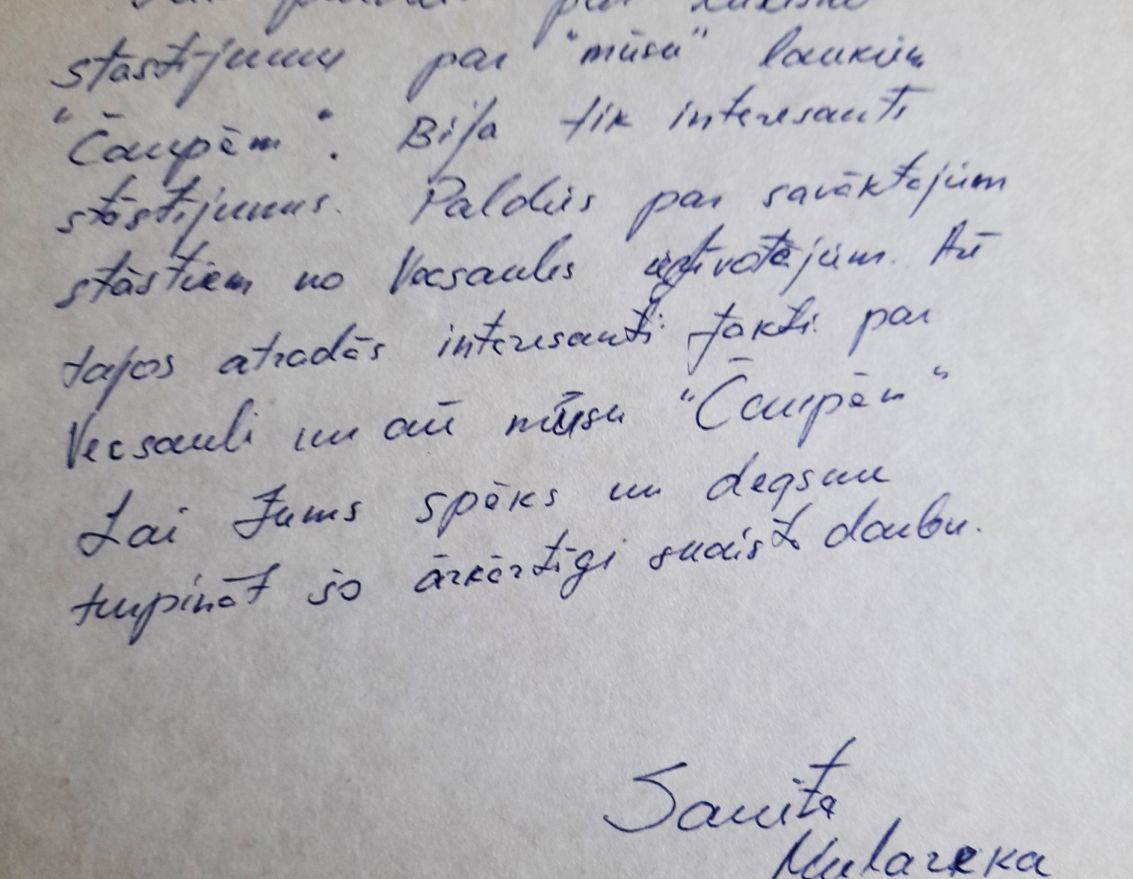 paldies par
stāstījumu par "mūsu" laukiem
"Čaupēm". Bija tik interesanti
stāstījums. Paldies par savāktajiem
stāstiem no Vecsaules iedzīvotājiem. Arī
tajos atradās interesanti fakti par
Vecsauli un arī mūsu "Čaupēm"
Lai Jums spēks un degsme
turpināt šo ārkārtīgi skaisto darbu.
Sanita